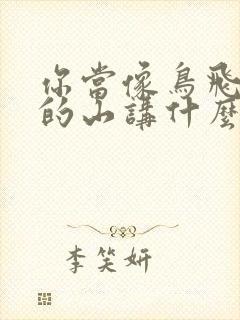 你當像鳥飛
的山講什麼
李笑妍